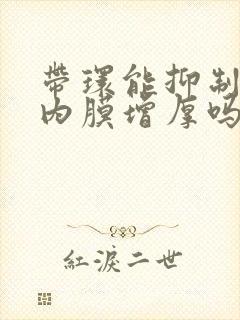 帶環能抑制
内膜增厚吗
紅淚二世